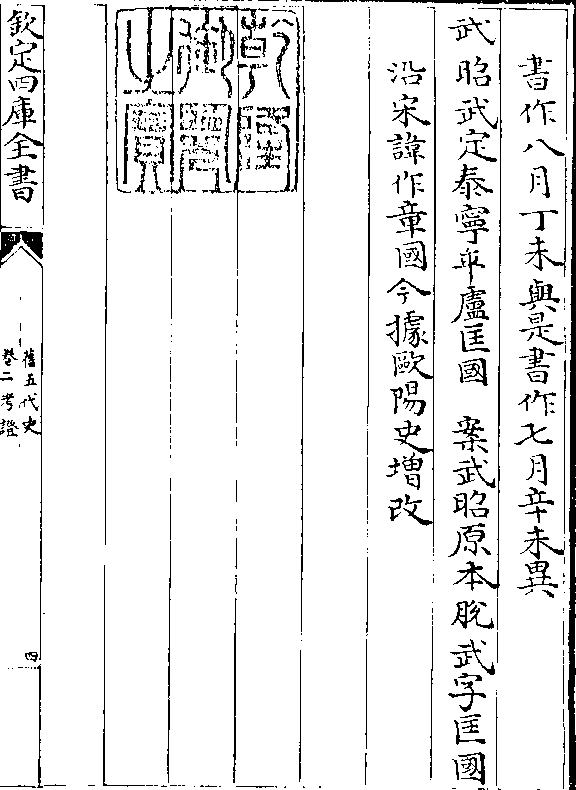 書作八月丁未與是書作七月辛未異
武昭武定泰寧平盧匡國　案武昭原本脫武字匡國
沿宋諱作章國今據歐陽史增改
乾隆御覽之寶
欽定四庫全書
舊五代史
卷二考證
四